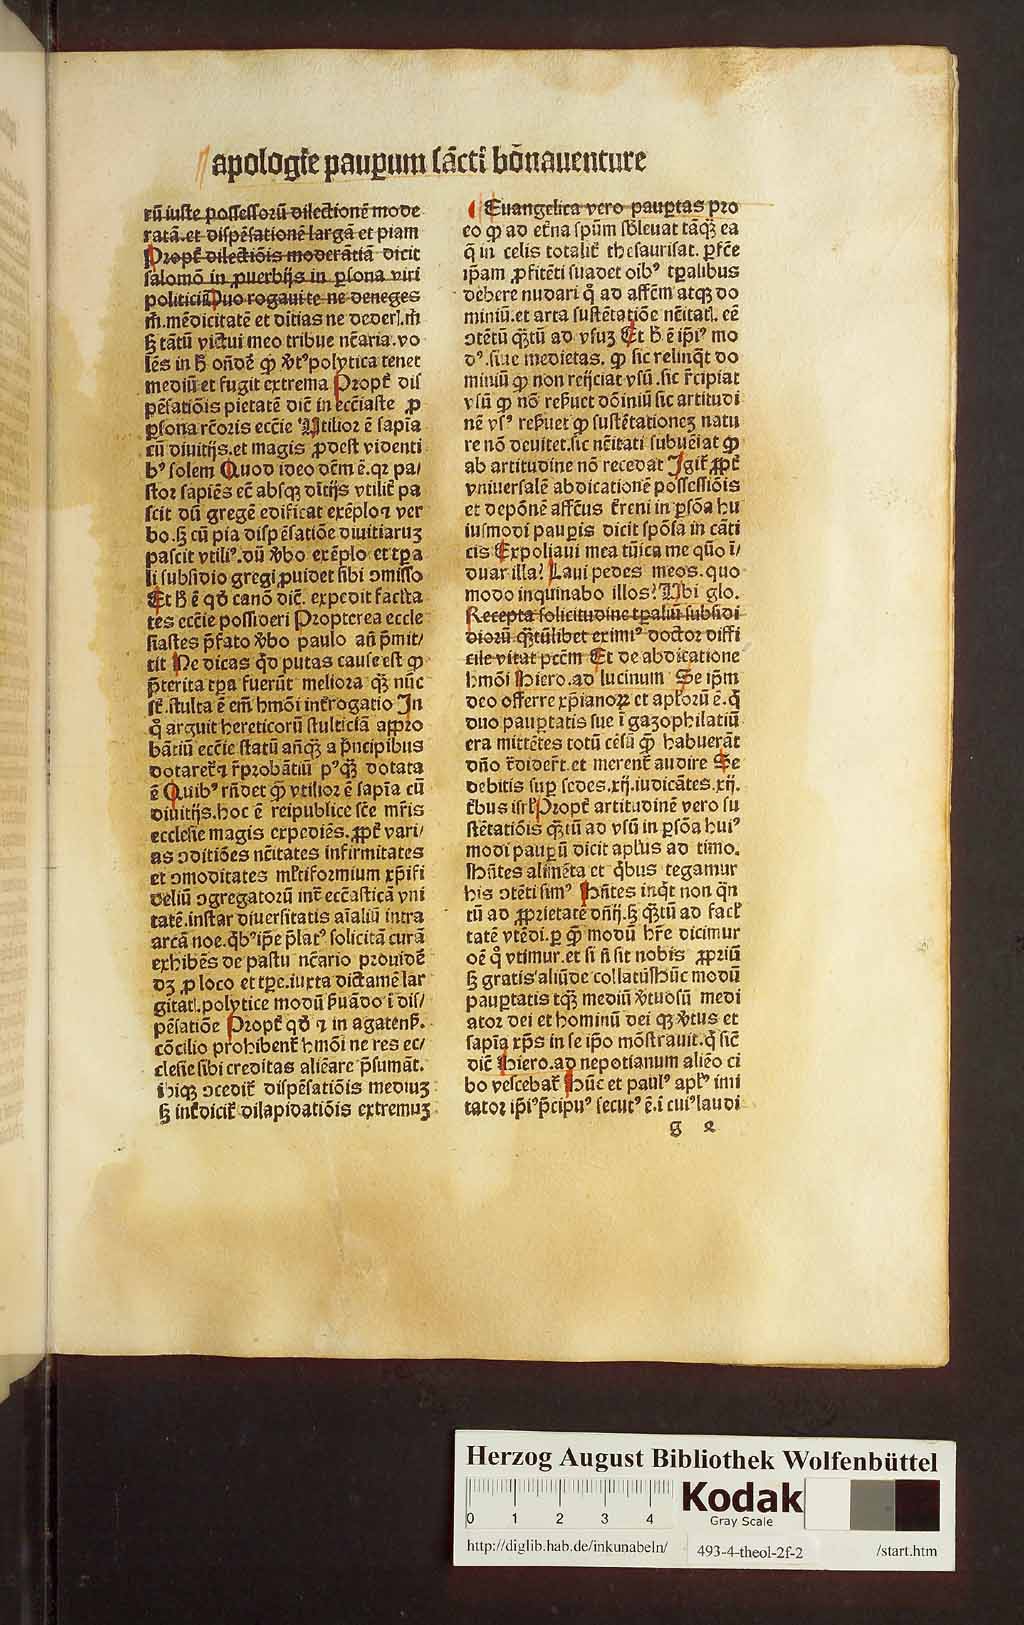 apologie paupum sācti bōnauenture
rū iuste possessorū dilectionē mode
ratā.et dispēsationē largā et piam
Propt̄ dilectiōis moderātiā dicit
salomō in ꝓuerbijs in ꝑsona viri
politici Duo rogaui te ne deneges
m̄.mēdicitatē et ditias ne dederl.m̄
ꝫ tātū victui meo tribue nc̄aria.vo
lēs in h̄ ondē ꝙ v̄tꝰ polytica tenet
mediū et fugit extrema Propt̄ dis
pēsatiōis pietatē dic̄ in ecc̄iaste ꝓ
ꝑsona rc̄oris ecc̄ie Vtilior ē sapīa
cū diuitijs.et magis ꝓdest videnti
bꝰ solem Quod ideo dc̄m ē.qꝛ pa/
stor sapiēs ec̄ absqꝫ dītijs vtilit̄ pa
scit dū gregē edificat exēploꝛ ver
bo.ꝫ cū pia dispēsatiōe diuitiaruꝫ
pascit vtiliꝰ.dū v̄bo exēplo et tꝑa
li subsidio gregi ꝓuidet sibi ↄmisso
Et h̄ ē qd̄ canō dic̄. expedit faclta
tes ecc̄ie possideri Propterea eccle
siastes p̄fato v̄bo paulo an̄ p̄mit/
tit Ne dicas qd̄ putas cause est ꝙ
p̄terita tꝑa fuerūt meliora qꝫ nūc
st̄.stulta ē em̄ hmōi int̄rogatio In
q̊ arguit hereticorū stulticiā appro
bātiū ecc̄ie statū an̄qꝫ a p̄ncipibus
dotaret̄ ⁊ r̄probātiū pꝰqꝫ dotata
ē Quibꝰ rn̄det ꝙ vtilior ē sapīa cū
diuitijs.hoc ē reipublice sc̄e mr̄is
ecclesie magis expediēs.ꝓpt̄ vari/
as ↄditiōes nc̄itates infirmitates
et ↄmoditates mltiformium xp̄ifi
deliū ↄgregatorū int̄ ecc̄asticā vni
tatē.instar diuersitatis aīaliū intra
arcā noe.qb̄ꝰ ip̄e p̄latꝰ solicitā curā
exhibēs de pastu nc̄ario prouidē
dꝫ ꝓ loco et tꝑe.iuxta dictamē lar
gitatl.polytice modū p̄uādo ī dis/
pēsatiōe Propt̄ qd̄ ⁊ in agatenp̄.
cōcilio prohibent̄ hmōi ne res ec/
clesie sibi creditas aliēare p̄sumāt.
ibiqꝫ ↄcedit̄ dispēsatiōis mediuꝫ
ꝫ int̄dicit̄ dilapidatiōis extremuꝫ
Euangelica vero pauꝑtas pro
eo ꝙ ad et̄na sp̄um sb̄leuat tāqꝫ ea
q̄ in celis totalit̄ thesaurisat. ꝑfc̄e
ip̄am ꝓfitēti suadet oībꝰ tꝑalibus
debere nudari q̊ ad affc̄m atqꝫ do
miniū.et arta sustētatiōe nc̄itatl. eē
ↄtētū qꝫtū ad vsuꝫ Et h̄ ē ip̄iꝰ mo
dꝰ.siue medietas. ꝙ sic relinqt̄ do
miniū ꝙ non reijciat vsū.sic r̄cipiat
vsū ꝙ nō resr̄uet dōiniū sic artitudi
nē vsꝰ resr̄uet ꝙ sustētationeꝫ natu
re nō deuitet.sic nc̄itati subueīat ꝙ
ab artitudine nō recedat Igit̄ ꝓpt̄
vniuersalē abdicationē possessiōis
et depōnē affc̄us t̄reni in ꝑsōa hu
iusmodi pauꝑis dicit spōsa in cāti
cis Expoliaui mea tūica me quō ī/
duar illa? Laui pedes meos. quo
modo inquinabo illos? Vbi glo.
Recepta solicitudine tꝑaliū subsidi
diorū qꝫtūlibet eximiꝰ doctor diffi
cile vitat pcc̄m Et de abdicatione
hmōi Hiero.ad lucinum Se ip̄m
deo offerre xp̄ianoꝝ et aplorū ē.q̄
duo pauꝑtatis sue ī gazophilatiū
era mittētes totū cēsū ꝙ habuerāt
dn̄o r̄didert̄.et merent̄ audire Se
debitis suꝑ sedes.xij.iudicātes.xij.
t̄bus isrl̄ Propt̄ artitudinē vero su
stētatiōis qꝫtū ad vsū in ꝑsōa huiꝰ
modi pauꝑū dicit aplūs ad timo.
Hn̄tes alimēta et qb̄us tegamur
his ↄtēti simꝰ Hn̄tes inqt̄ non qn̄
tū ad ꝓprietatē dn̄ij.ꝫ qꝫtū ad facl̄
tatē vtēdi.ꝑ ꝙ modū hr̄e dicimur
oē q̊ vtimur.et si n̄ sit nobis ꝓpriū
ꝫ gratis aliūde collatū Hūc modū
pauꝑtatis tqꝫ mediū v̄tuosū medi
ator dei et hominū dei qꝫ v̄tus et
sapīa xp̄s in se ip̄o mōstrauit.q̊ sic̄
dic̄ Hiero.ad nepotianum aliēo ci
bo vescebat̄ Hūc et paulꝰ aplꝰ imi
tator ip̄iꝰ p̄cipuꝰ secutꝰ ē.ī cuiꝰ laudi
g 2
Herzog August Bibliothek Wolfenbüttel
0 1 2 3 4
Kodak
Gray Scale
http://diglib.hab.de/inkunabeln/ 493-4-theol-2f-2 /start.htm